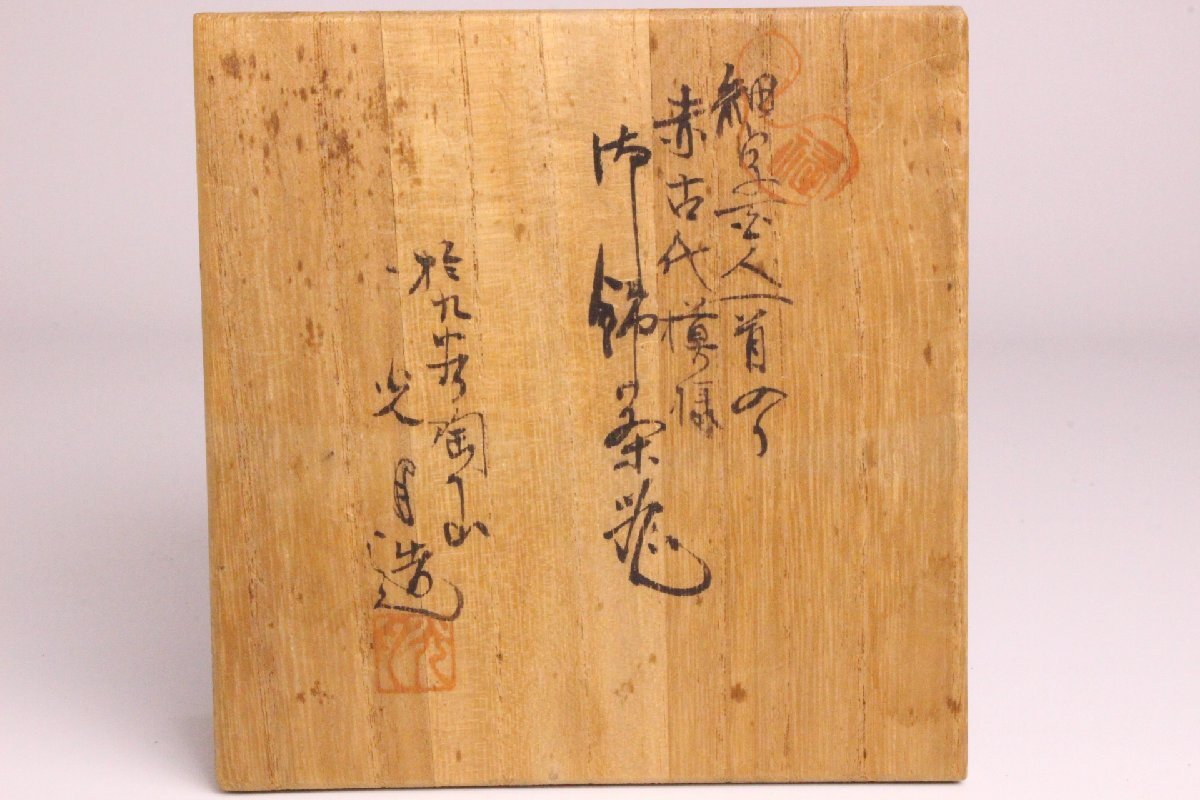 細字百人一首の
赤古代模様
御錦茶碗
於九谷陶山
光月造